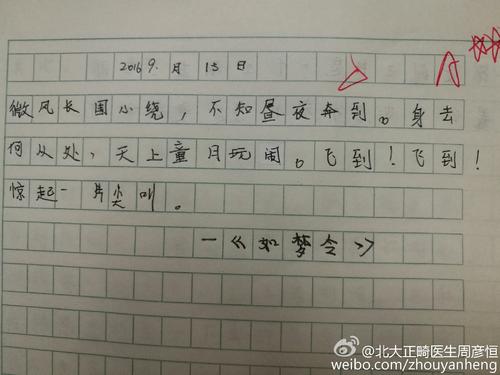 2016 9. 月 15 日 A
微风长围小绕，不知昼夜奔到。身去
何从处，天上童月玩闹。飞到！飞到！
惊起一片尖叫。
—《如梦令》
@北大正畸医生周彦恒
weibo.com/zhouyanheng